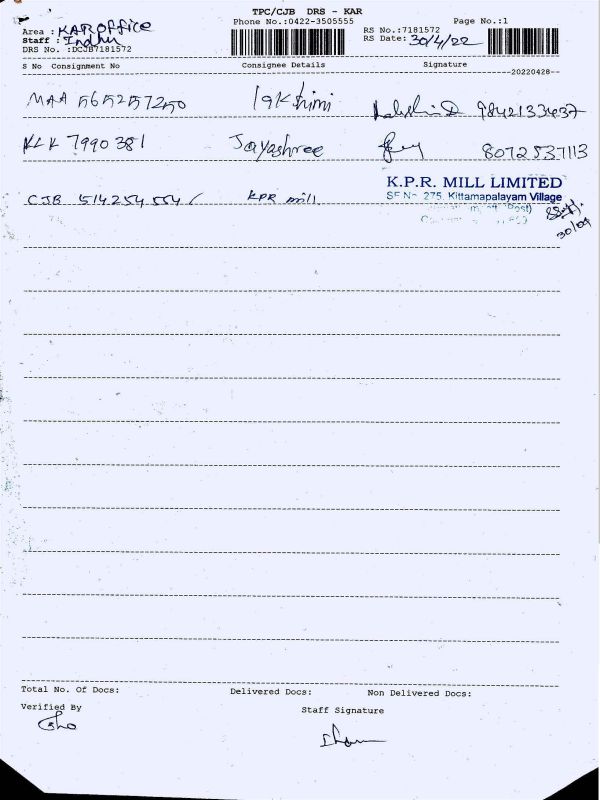 TPC/CJB DRS - KAR
Area : KAR Office Phone No.:0422-3505555 Page No.:1
Staff : Indhu RS No.:7181572
DRS No. :DCJB7181572 RS Date: 30/4/22
S No Consignment No Consignee Details Signature
--20220428--
MAA 565257250 lakshimi Lakshmi D 9842133437
KLK 7990381 Jayashree 8072537113
K.P.R. MILL LIMITED
CJB 514254554 KPR mill SF No 275, Kittamapalayam Village
Post)
30/04
Total No. Of Docs: Delivered Docs: Non Delivered Docs:
Verified By Staff Signature